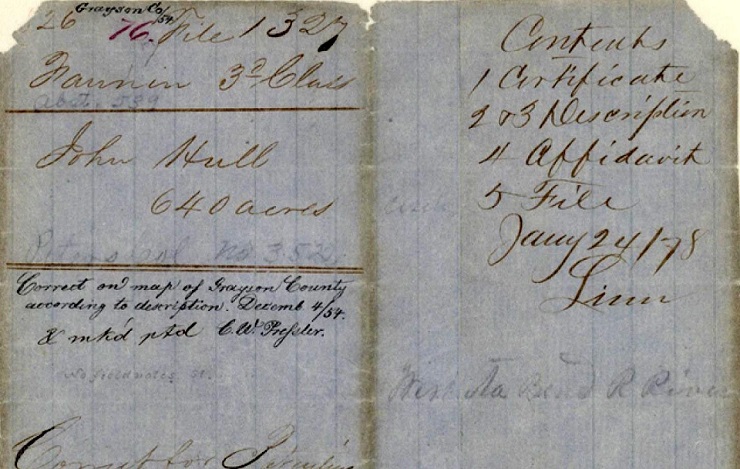 Grayson Co
26 /54
76. File 1327
Fannin 3d Class
Abst. 539
John Hull
640 acres
Peters Col No 352
Correct on map of Grayson County
according to description. Decemb 4/54.
& mk'd ptd C.W. Pressler.
No fieldnotes
Correct for
Contents
1 Certificate
2 & 3 Description
4 Affidavit
5 File
Jany 24/78
Linn
Bend R River